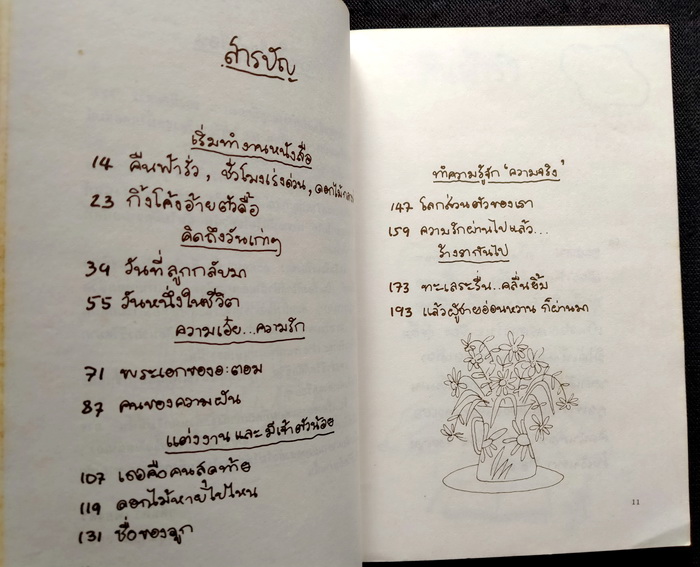 สารบัญ
เริ่มทำงานหนังสือ
14 คืนฟ้ารั่ว, ชั่วโมงเร่งด่วน,
23 กิ้งโค้งอ้ายตัวลื้อ
คิดถึงวันเก่าๆ
34 วันที่ลูกกลับมา
55 วันหนึ่งในชีวิต
ความเอ๋ย...ความรัก
71 พระเอกของอะตอม
87 คนของความฝัน
แต่งงานและมีเจ้าตัวน้อย
107 เธอคือคนสุดท้าย
119 ดอกไม้หายไปไหน
131 ชื่อของลูก
ทำความรู้จัก 'ความจริง'
147 โลกส่วนตัวของเรา
159 ความรักผ่านไปแล้ว...
ร้างรากันไป
173 ทะเลระรื่น..คลื่นยิ้ม
193 แล้วผู้ชายอ่อนหวาน ก็ผ่านมา
11